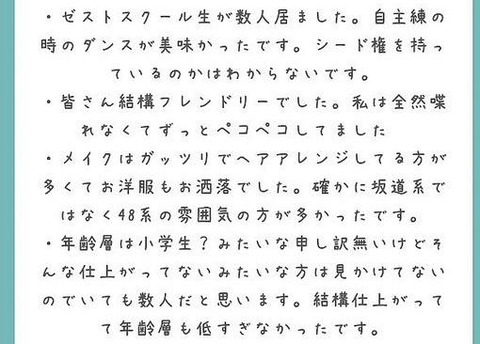 ・ゼストスクール生が数人居ました。自主練の
時のダンスが美味かったです。シード権を持っ
ているのかはわからないです。
・皆さん結構フレンドリーでした。私は全然喋
れなくてずっとペコペコしてました
・メイクはガッツリでヘアアレンジしてる方が
多くてお洋服もお洒落でした。確かに坂道系で
はなく48系の雰囲気の方が多かったです。
・年齢層は小学生？みたいな申し訳無いけどそ
んな仕上がってないみたいな方は見かけてない
のでいても数人だと思います。結構仕上がって
て年齢層も低すぎなかったです。